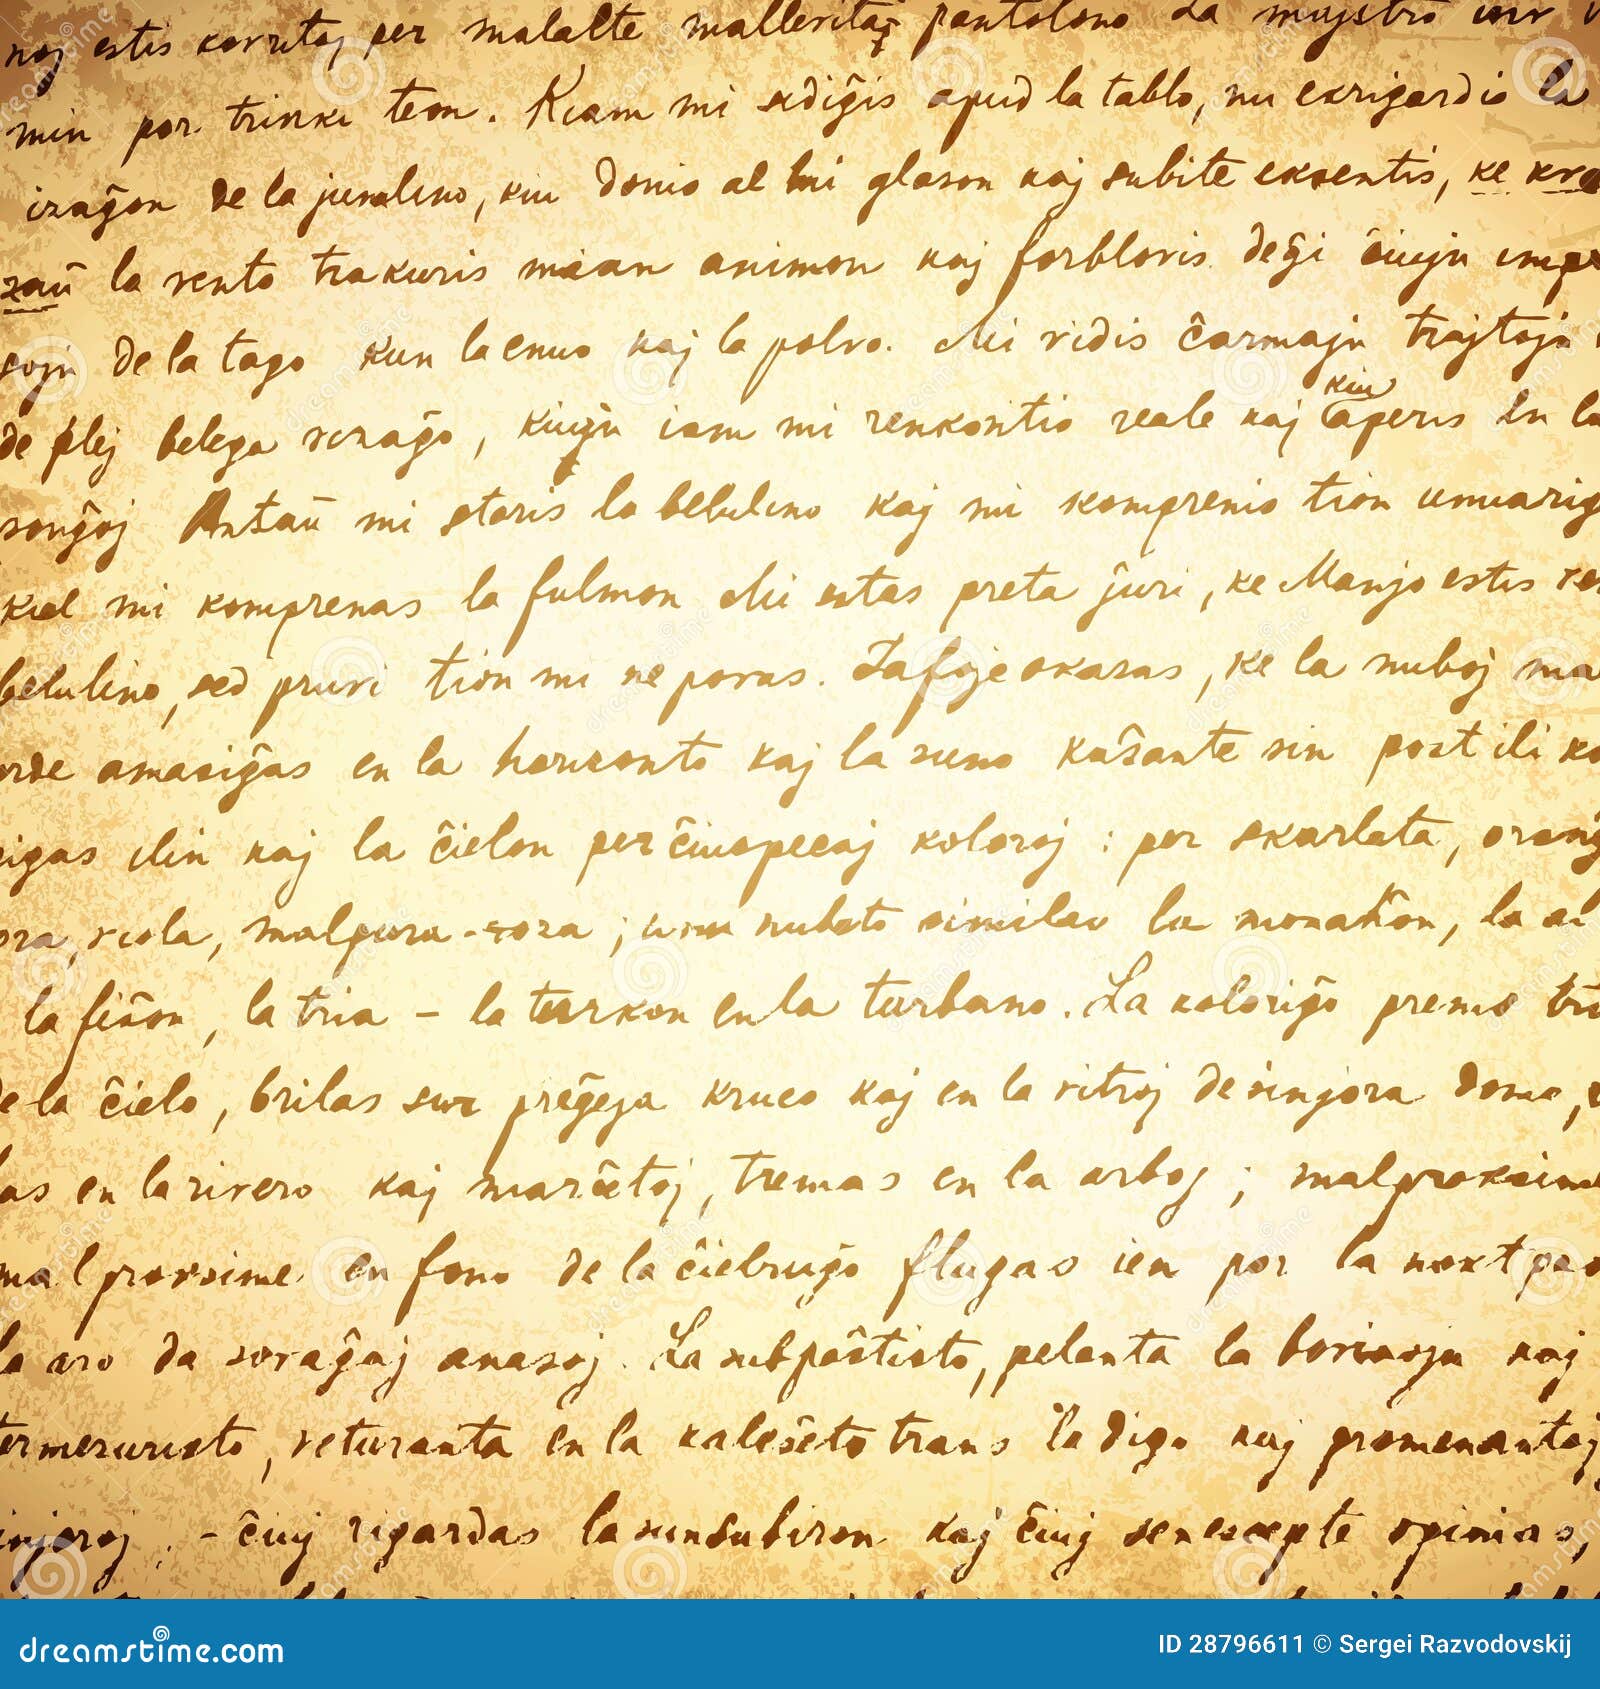 estis kovritaj per malalte mallevitaj pantalono La majstro
min por trinki teon. Kiam mi sidiĝis apud la tablo, mi ekrigardis la
izaĝon de la junulino, kiu donis al mi glason kaj subite eksentis, ke
zaŭ la vento trakuris mian animon kaj forblovis deĝi ĉiujn
sojn de la tago kun la enuo kaj la polvo. Mi vidis ĉarmajn trajtojn
de plej belega vizaĝo, kiujn iam mi renkontis reale kaj kiu aperis en la
sonĝoj Antaŭ mi staris la belulino kaj mi komprenis tion unuarig
kiel mi komprenas la fulmon Mi estas preta ĵuri, ke Manjo estis
belulino, sed pruvi tion mi ne povas. Iafoje okazas, ke la nuboj
orde amasiĝas en la horizonto kaj la suno kaŝante sin post ili ko
rigas ilin kaj la ĉielon per ĉiuspecaj koloroj : per skarlata, oranĝ
ora, viola, malpura-roza ; unu nubeto similas la monaĥon, la al
la fiŝon, la tria - la turkon en la turbano. La koloriĝo premis tri
de la ĉielo, brilas sur preĝeja kruco kaj en la vitroj de sinjora domo,
las en la rivero kaj marĉetoj, tremas en la arboj ; malproksime
malproksime en fono de la ĉielruĝo flugas ien por la noktpas
la aro da sovaĝaj anasoj. La subpaŝtisto, pelanta la bovinojn kaj
termezuristo, veturanta en la kaleŝeto trans la digo kaj promenantaj
injoroj. - ĉiuj rigardas la sunsubiron kaj ĉiuj senescepte opinias,
dreamstime
ID 28796611 © Sergei Razvodovskij